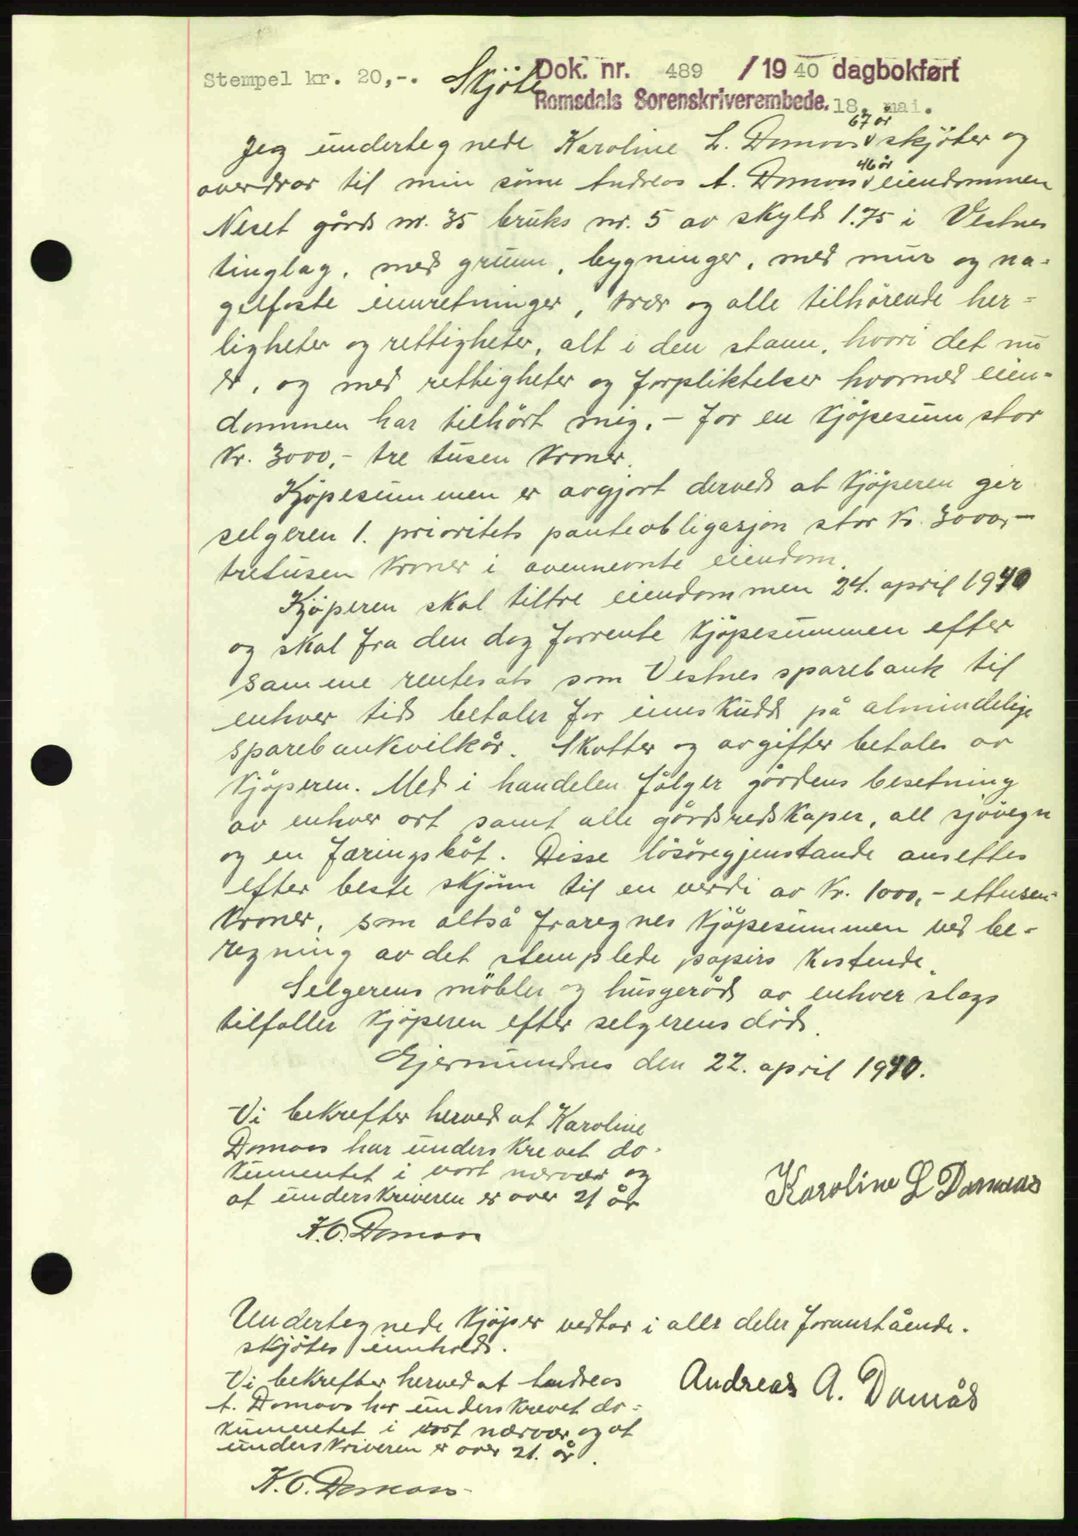 Stempel kr. 20,-. Skjöte Dok. nr. 489 / 1940 dagbokført
Romsdals Sorenskriverembede. 18. mai.
67 år
Jeg undertegnede Karoline L. Domaas v skjöter og
46 år
overdrar til min sönn Andreas A. Domaas v eiendommen
Neset gårds nr. 35 bruks nr. 5 av skyld 1.75 i Vestnes
tinglag, med grunn, bygninger, med mur og na-
gelfaste innretninger, trær og alle tilhörende her-
ligheter og rettigheter, alt i den stann, hvori det nu
er, og med rettigheter og forpliktelser hvormed eien-
dommen har tilhört mig, - for en kjöpesum stor
kr. 3000,- tre tusen kroner.
Kjöpesummen er avgjort derved at kjöperen gir
selgeren 1. prioritets panteobligasjon stor kr. 3000,-
tretusen kroner i ovennevnte eiendom.
Kjöperen skal tiltre eiendommen 24. april 1940
og skal fra den dag forrente kjöpesummen efter
samme rentesats som Vestnes sparebank til
enhver tids betaler for innskudd på almindelige
sparebankvilkår. Skatter og avgifter betales av
kjöperen. Med i handelen fölger gårdens besetning
av enhver art samt alle gårdsredskaper, all sjövegn
og en færingsbåt. Disse lösöregjenstande ansettes
efter beste skjönn til en verdi av kr. 1000,- ettusen-
kroner, som altså fraregnes kjöpesummen ved be-
regning av det stemplede papirs kostende.
Selgerens möbler og husgeråd av enhver slags
tilfaller kjöperen efter selgerens död.
Gjermundnes den 22. april 1940.
Vi bekrefter herved at Karoline
Domaas har underskrevet do-
kumentet i vort nærvær og
at underskriveren er over 21 år
Karoline L Domaas
K. O. Domaas
Undertegnede kjöper vedtar i alle deler foranstående
skjötes innhold.
Vi bekrefter herved at Andreas
A. Domaas har underskrevet do-
kumentet i vort nærvær og at
underskriveren er over 21. år.
Andreas A. Domås
K. O. Domaas